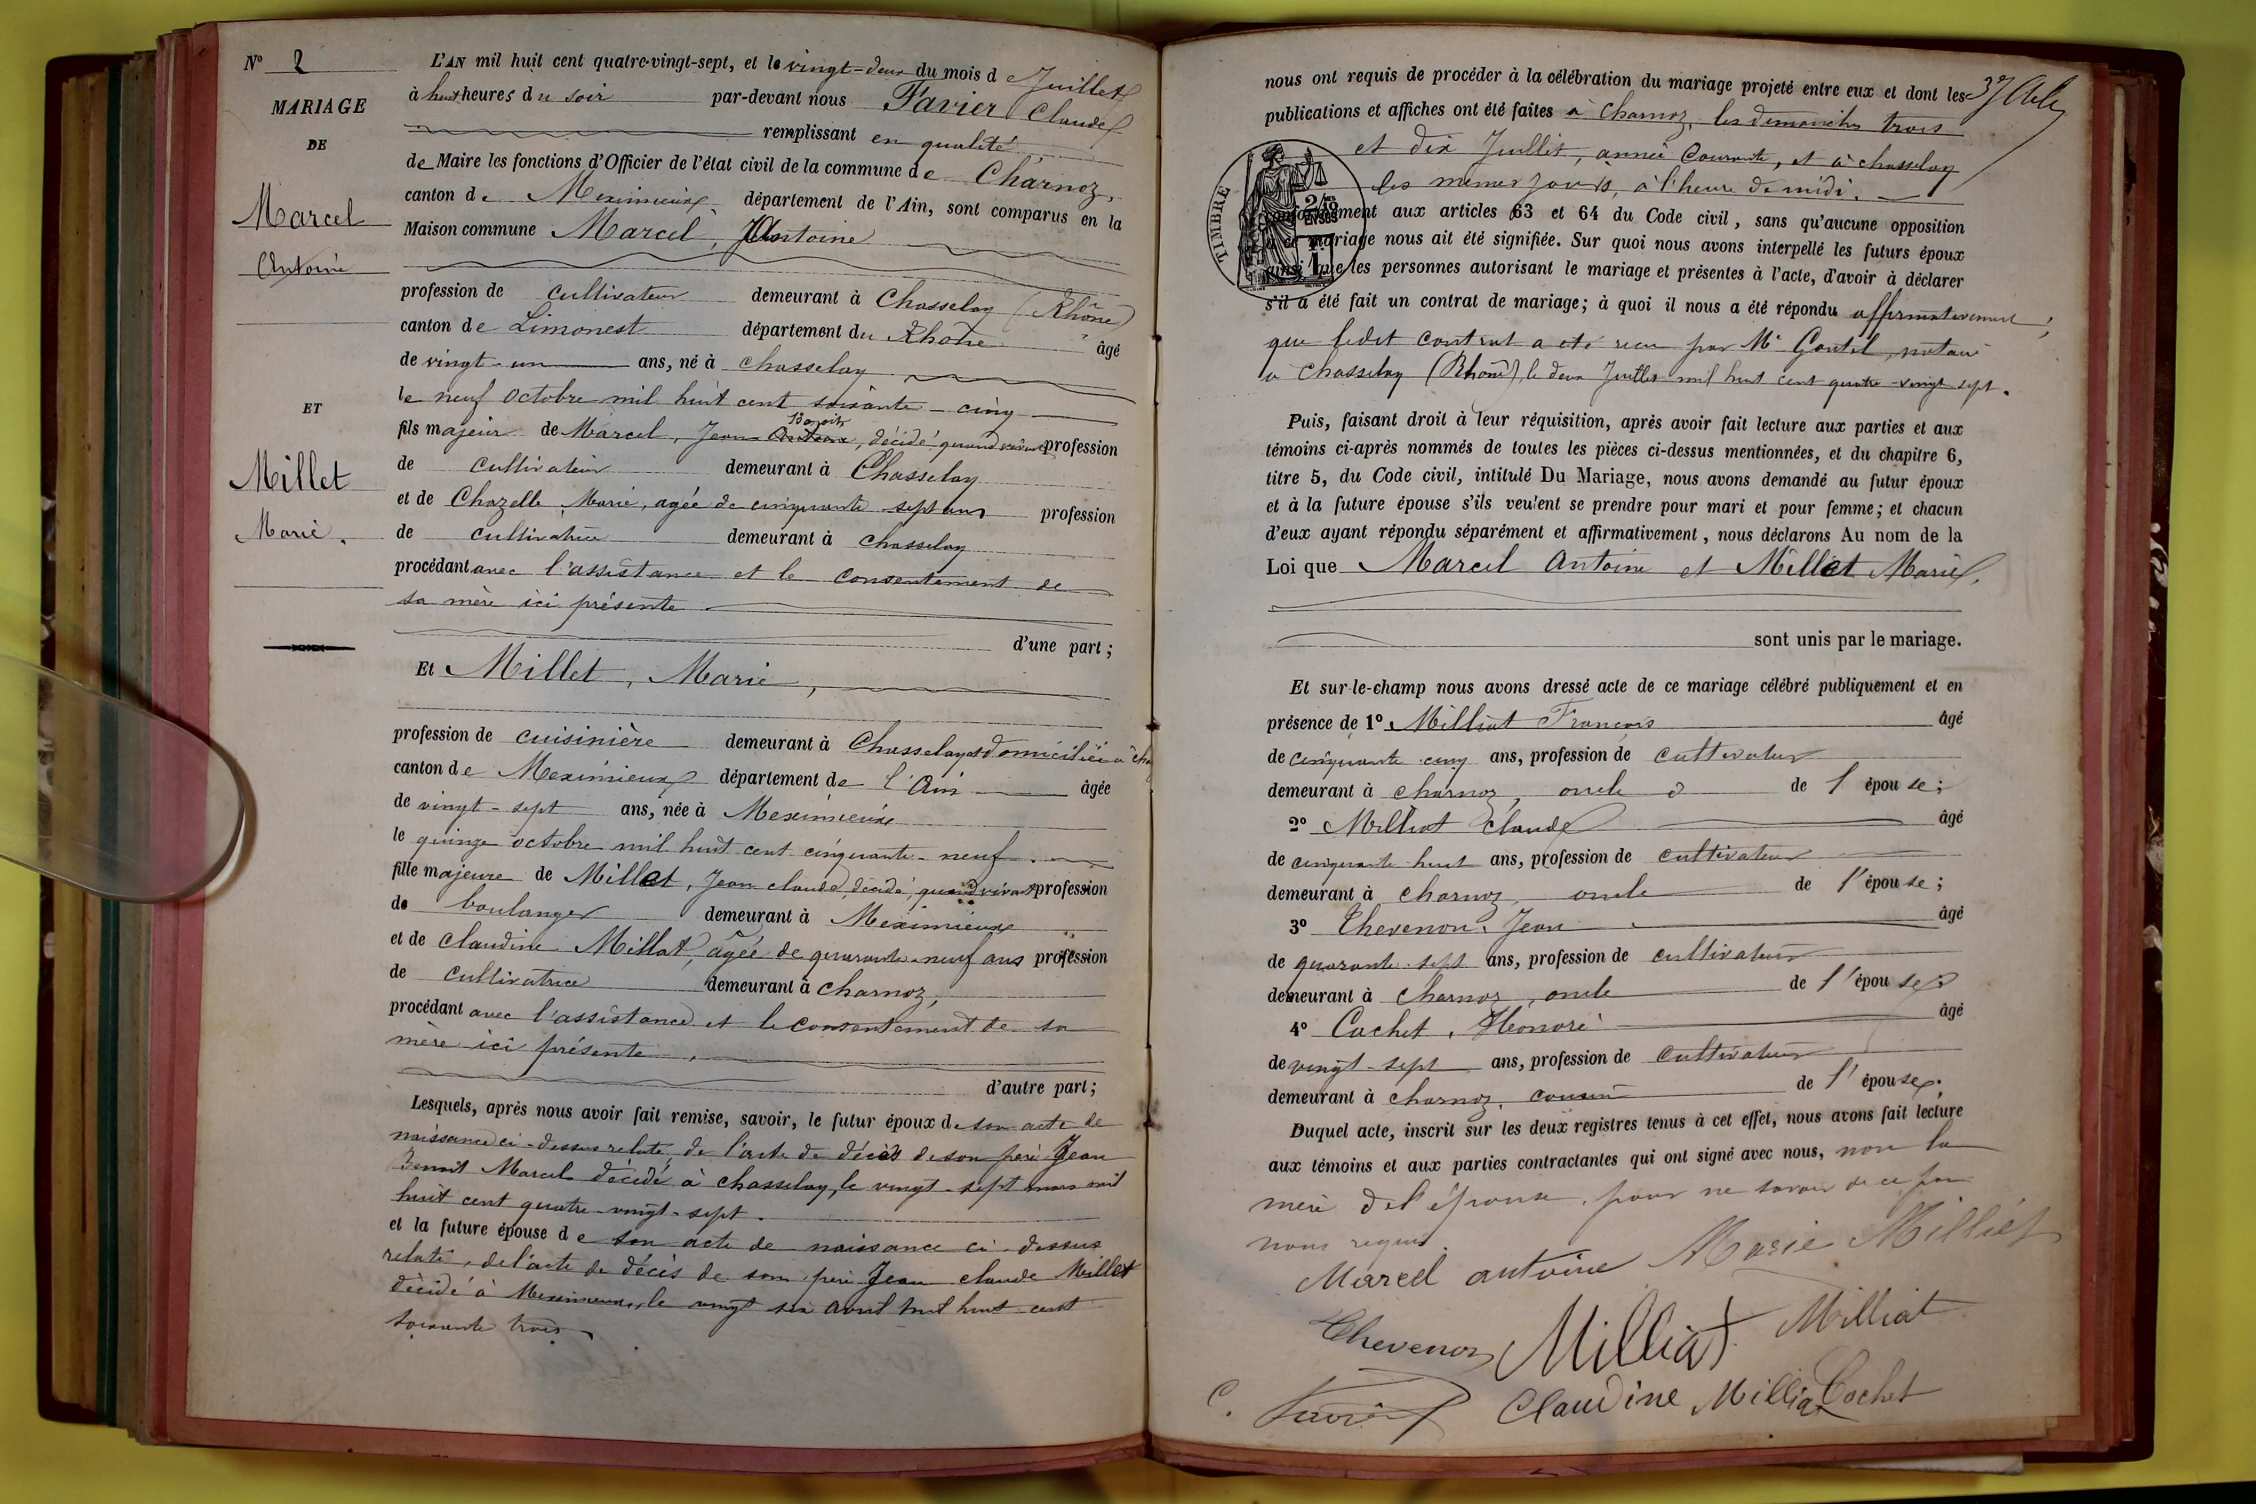 N° 2
MARIAGE
DE
Marcel
Antoine
ET
Millet
Marie.
L'AN mil huit cent quatre-vingt-sept, et le vingt-deux du mois de Juillet
à huit heures du soir par-devant nous Favier Claude
remplissant en qualité
de Maire les fonctions d'Officier de l'état civil de la commune de Charnoz,
canton de Meximieux département de l'Ain, sont comparus en la
Maison commune Marcel, Antoine
profession de cultivateur demeurant à Chasselay (Rhône)
canton de Limonest département du Rhône âgé
de vingt-un ans, né à chasselay
le neuf octobre mil huit cent soixante-cinq
fils majeur de Marcel, Jean Benoit, décédé quand vivant profession
de cultivateur demeurant à Chasselay
et de Chazelle Marie, agée de cinquante-sept ans profession
de cultivatrice demeurant à chasselay
procédant avec l'assistance et le consentement de
sa mère ici présente
d'une part;
Et Millet, Marie,
profession de cuisinière demeurant à Chasselay et domiciliée à
canton de Meximieux département de l'Ain âgée
de vingt-sept ans, née à Meximieux
le quinze octobre mil huit cent cinquante-neuf.
fille majeure de Millet, Jean claude, décédé, quand vivant profession
de boulanger demeurant à Meximieux
et de claudine Milliat, agée de quarante-neuf ans profession
de cultivatrice demeurant à charnoz,
procédant avec l'assistance et le consentement de sa
mère ici présente.
d'autre part;
Lesquels, après nous avoir fait remise, savoir, le futur époux de son acte de
naissance ci-dessus relaté, de l'acte de décès de son père Jean
Benoit Marcel décédé à chasselay, le vingt-sept mars mil
huit cent quatre-vingt-sept.
et la future épouse de son acte de naissance ci-dessus
relaté, de l'acte de décès de son père Jean claude Millet
décédé à Meximieux, le vingt six avril mil huit cent
soixante trois
nous ont requis de procéder à la célébration du mariage projeté entre eux et dont les
publications et affiches ont été faites à Charnoz, les dimanches trois
et dix Juillet, année Courante, et à chasselay
les mêmes jours, à l'heure de midi.
TIMBRE
conformément aux articles 63 et 64 du Code civil, sans qu'aucune opposition
à ce mariage nous ait été signifiée. Sur quoi nous avons interpellé les futurs époux
ainsi que les personnes autorisant le mariage et présentes à l'acte, d'avoir à déclarer
s'il a été fait un contrat de mariage; à quoi il nous a été répondu affirmativement;
que ledit contrat a été recu par Me Gontel, notaire
à Chasselay (Rhône), le deux Juillet mil huit cent quatre-vingt sept.
Puis, faisant droit à leur réquisition, après avoir fait lecture aux parties et aux
témoins ci-après nommés de toutes les pièces ci-dessus mentionnées, et du chapitre 6,
titre 5, du Code civil, intitulé Du Mariage, nous avons demandé au futur époux
et à la future épouse s'ils veulent se prendre pour mari et pour femme; et chacun
d'eux ayant répondu séparément et affirmativement, nous déclarons Au nom de la
Loi que Marcel Antoine et Millet Marie,
sont unis par le mariage.
Et sur-le-champ nous avons dressé acte de ce mariage célébré publiquement et en
présence de 1° Milliat François âgé
de cinquante-cinq ans, profession de cultivateur
demeurant à charnoz, oncle de l'épouse;
2° Milliat Claude âgé
de cinquante-huit ans, profession de cultivateur
demeurant à charnoz, oncle de l'épouse;
3° Thevenon, Jean âgé
de quarante-sept ans, profession de cultivateur
demeurant à charnoz, oncle de l'épouse
4° Cochet, Honoré âgé
de vingt-sept ans, profession de cultivateur
demeurant à charnoz, cousin de l'épouse.
Duquel acte, inscrit sur les deux registres tenus à cet effet, nous avons fait lecture
aux témoins et aux parties contractantes qui ont signé avec nous, non la
mère de l'épouse, pour ne savoir de ce par
nous requis.
Marcel antoine Marie Milliet
Thevenon Milliat Milliat
C. Favier Claudine Milliat Cochet